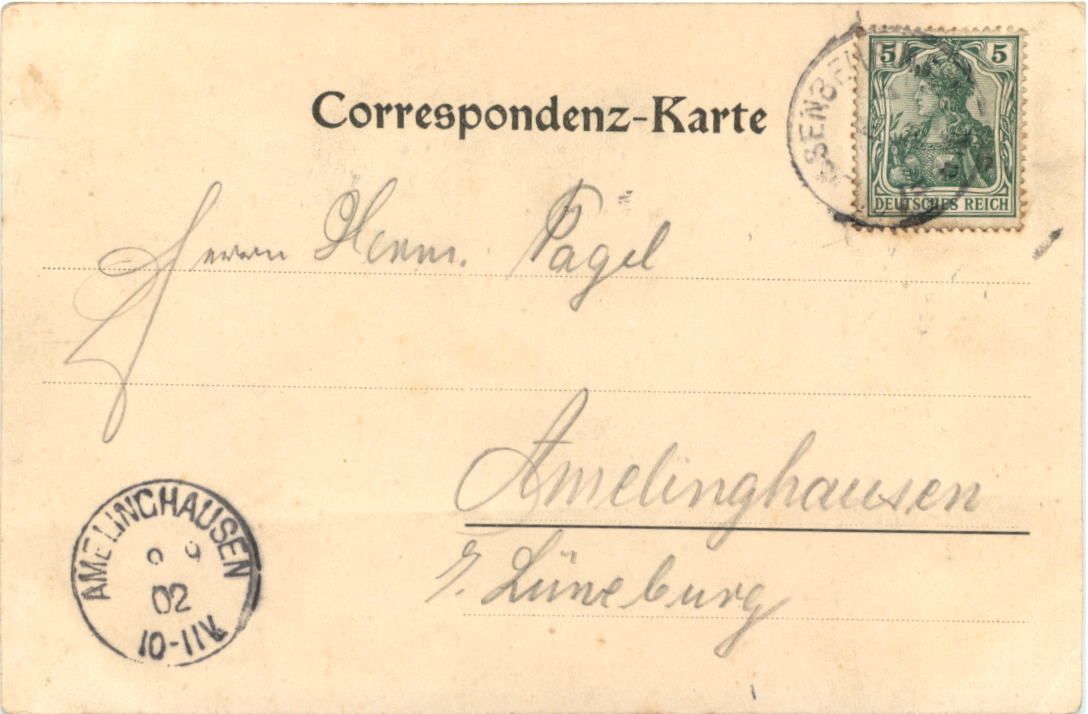 Correspondenz-Karte
5 5
DEUTSCHES REICH
Herrn Herm. Pagel
Amelinghausen
Lüneburg
AMELINGHAUSEN
9 9
02
10-11V.